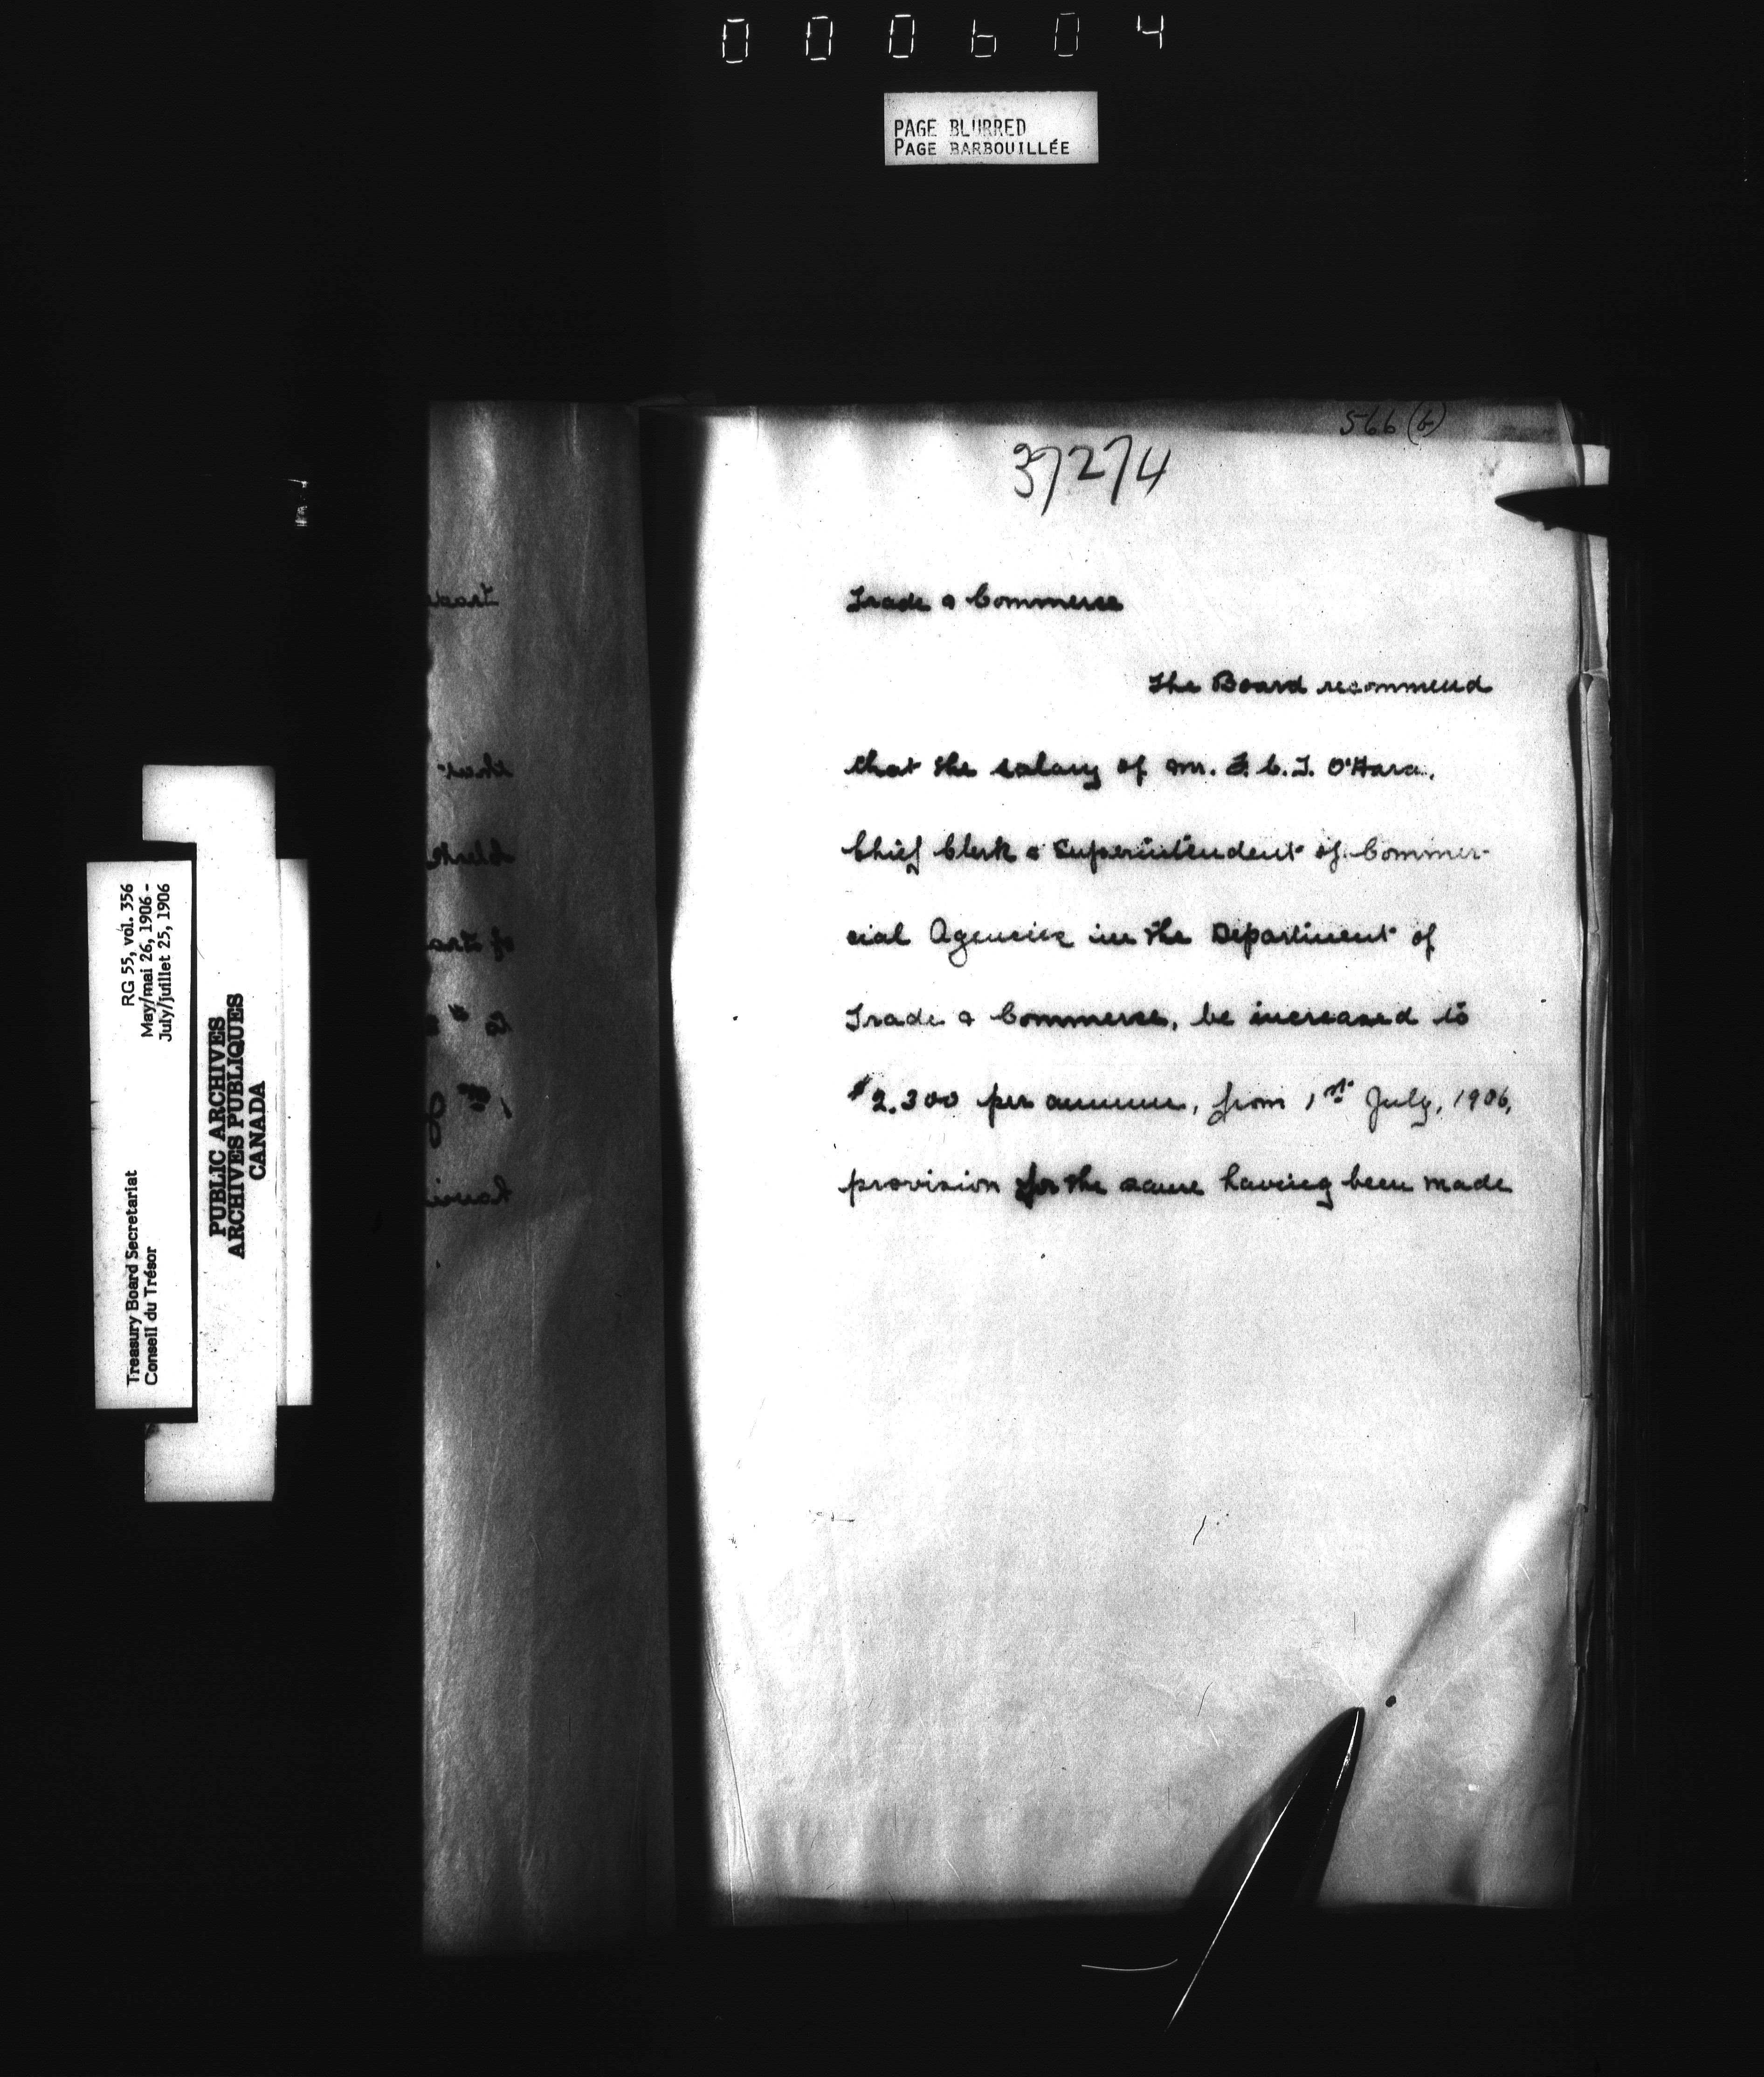 000604
PAGE BLURRED
PAGE BARBOUILLÉE
566 (b)
37274
Trade & Commerce
The Board recommend
that the salary of Mr. F. C. T. O'Hara,
Chief Clerk & Superintendent of Commer-
cial Agencies in the Department of
Trade & Commerce, be increased to
$2.300 per annum, from 1st July, 1906,
provision for the same having been made
Treasury Board Secretariat
Conseil du Trésor
RG 55, vol. 356
May/mai 26, 1906 -
July/juillet 25, 1906
PUBLIC ARCHIVES
ARCHIVES PUBLIQUES
CANADA